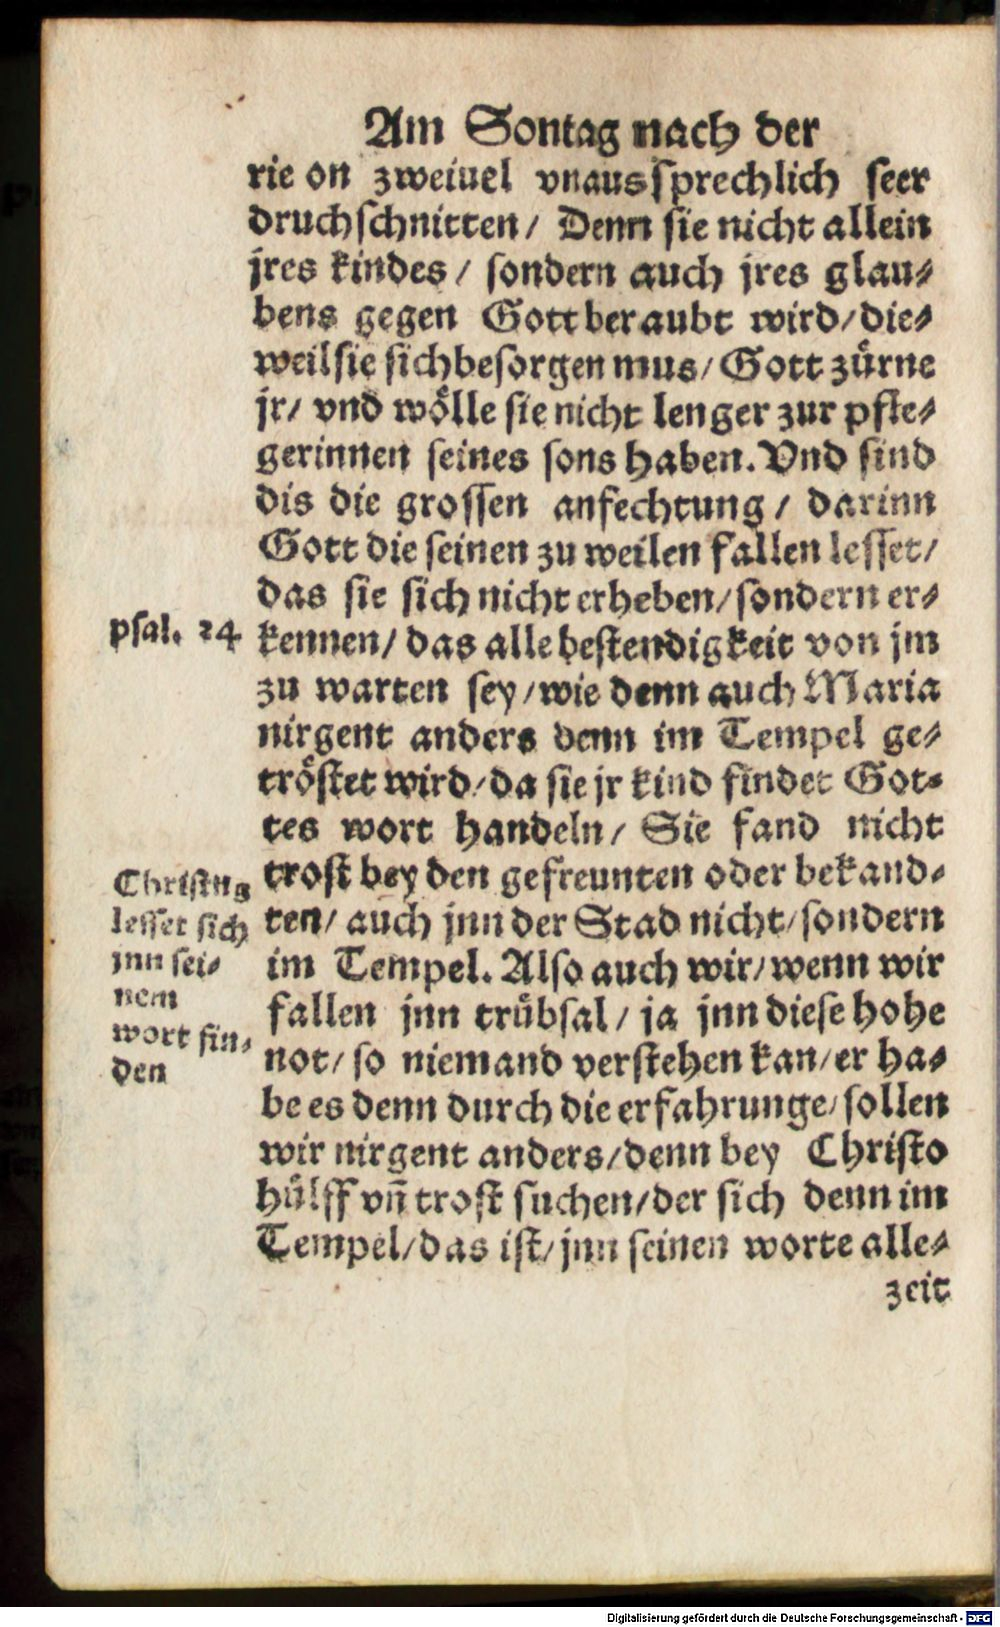 Am Sontag nach der
rie on zweiuel vnaussprechlich seer
druchschnitten/ Denn sie nicht allein
jres kindes/ sondern auch jres glau⸗
bens gegen Gott beraubt wird/ die⸗
weil sie sich besorgen mus/ Gott zürne
jr/ vnd wölle sie nicht lenger zur pfle⸗
gerinnen seines sons haben. Vnd sind
dis die grossen anfechtung/ darinn
Gott die seinen zu weilen fallen lesset/
das sie sich nicht erheben/ sondern er⸗
psal. 24
kennen/ das alle bestendigkeit von jm
zu warten sey/ wie denn auch Maria
nirgent anders denn im Tempel ge⸗
tröstet wird/ da sie jr kind findet Got⸗
tes wort handeln/ Sie fand nicht
trost bey den gefreunten oder bekand⸗
ten/ auch jnn der Stad nicht/ sondern
im Tempel. Also auch wir/ wenn wir
fallen jnn trübsal/ ja jnn diese hohe
not/ so niemand verstehen kan/ er ha⸗
be es denn durch die erfahrunge/ sollen
wir nirgent anders/ denn bey Christo
hülff vñ trost suchen/ der sich denn im
Tempel/ das ist/ jnn seinen worte alle⸗
zeit
Christus
lesset sich
jnn sei⸗
nem
wort fin⸗
den
Digitalisierung gefördert durch die Deutsche Forschungsgemeinschaft - DFG